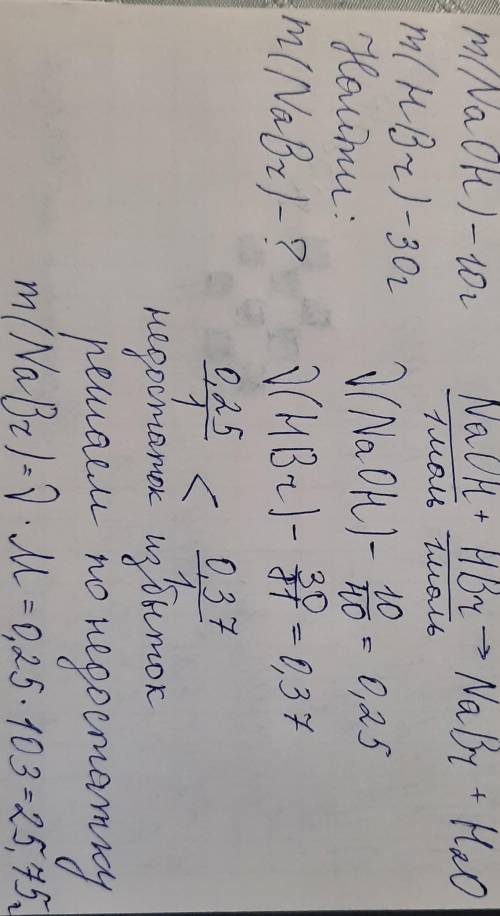 m(NaOH) - 10г
m(HBr) - 30г
Найти:
m(NaBr) - ?
NaOH + HBr → NaBr + H₂O
1моль 1моль
ν(NaOH) - 10/40 = 0,25
ν(HBr) - 30/81 = 0,37
0,25/1 < 0,37/1
недостаток избыток
решаем по недостатку
m(NaBr) = ν · M = 0,25 · 103 = 25,75г